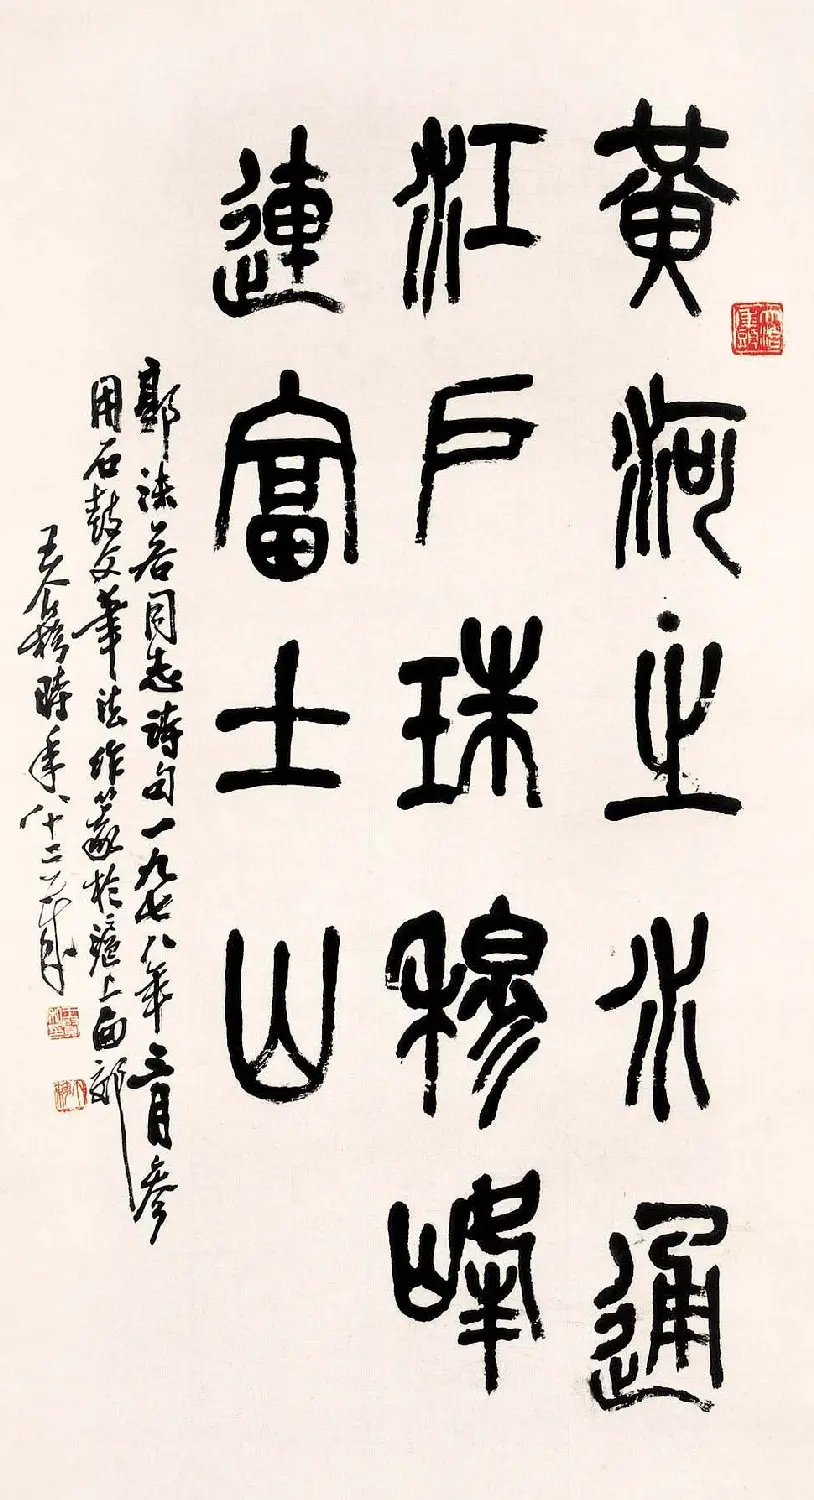 黃河之水通
江戶珠穆峰
連富士山
郭沫若同志詩句一九七八年三月參
用石鼓文筆法作篆於滬上西郊
王个簃時年八十二歲